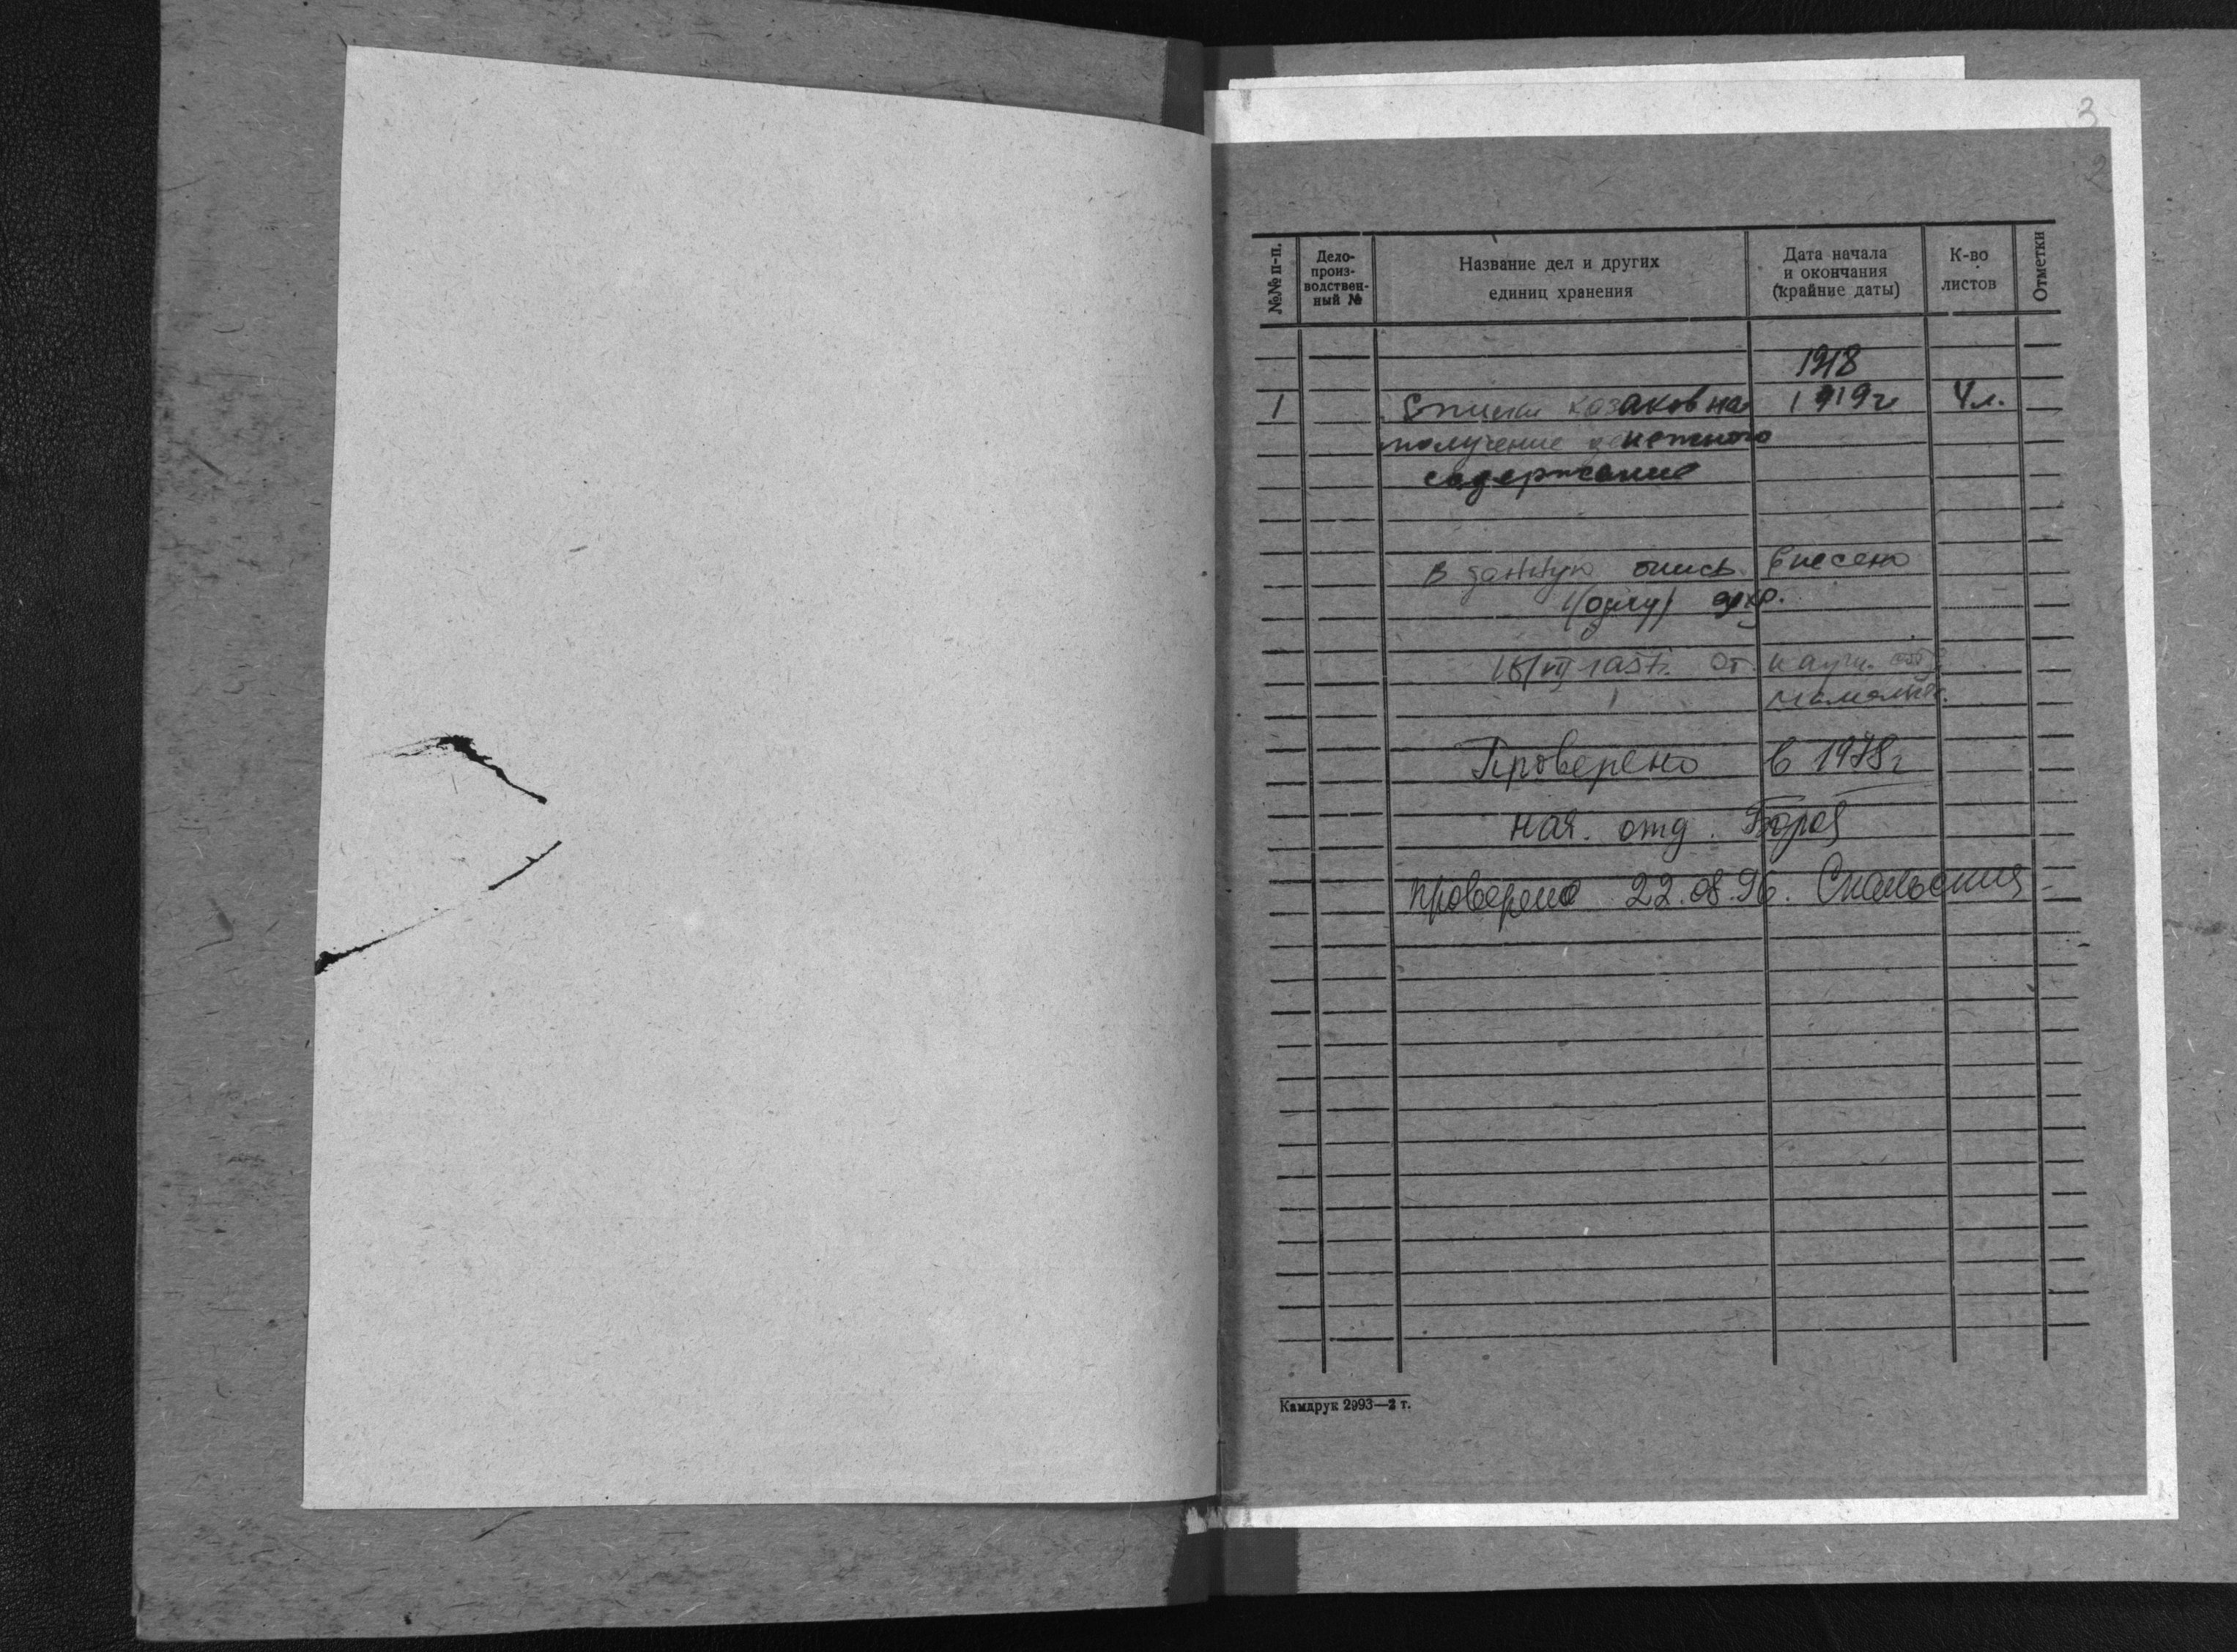 3
2
№№ п-п.
Дело-
произ-
водствен-
ный №
Название дел и других
единиц хранения
Дата начала
и окончания
(крайние даты)
К-во
листов
Отметки
1918
1 Списки казаков на 1919г 4 л.
получение денежного
содержание
В данную опись внесено
1/одну/ ед. хр.
От научн.
Проверено в 1978г
нач. отд.
проверено 22.08.96.
Камдрук 2993—2 т.